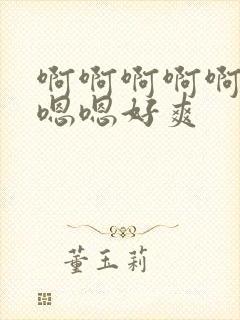 啊啊啊啊啊
嗯嗯好爽
董玉莉